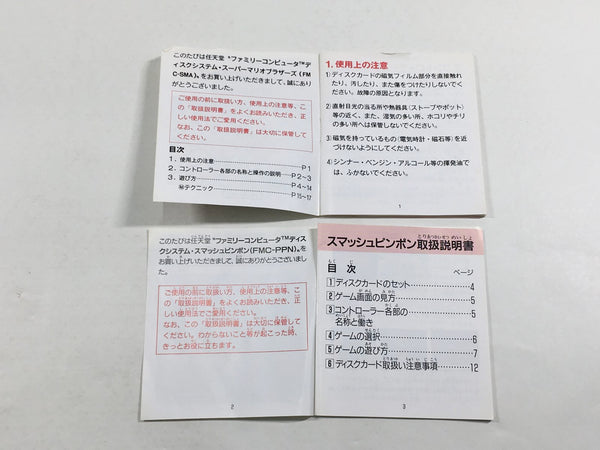 このたびは任天堂 "ファミリーコンピュータ™デ
ィスクシステム・スーパーマリオブラザーズ(FM
C-SMA)„をお買い上げいただきまして、誠にあり
がとうございました。
ご使用の前に取扱い方、使用上の注意等、こ
の「取扱説明書」をよくお読みいただき、正
しい使用法でご愛用ください。
なお、この「取扱説明書」は大切に保管して
ください。
目次
1. 使用上の注意 P1
2. コントローラー各部の名称と操作の説明 P2~3
3. 遊び方 P4~14
㊙テクニック P15~17
1. 使用上の注意
1) ディスクカードの磁気フィルム部分を直接触れ
たり、汚したり、また傷をつけたりしないでくだ
さい。故障の原因となります。
2) 直射日光の当る所や熱器具(ストーブやポット)
等の近く、また、湿気の多い所、ホコリやチリ
の多い所へは保管しないでください。
3) 磁気を持っているもの(電気時計・磁石等)を近
づけないようにしてください。
4) シンナー・ベンジン・アルコール等の揮発油で
は、ふかないでください。
1
このたびは任天堂 "ファミリーコンピュータ™ディス
クシステム・スマッシュピンポン(FMC-PPN)„を
お買い上げいただきまして、誠にありがとうございまし
た。
ご使用の前に取扱い方、使用上の注意等、こ
の「取扱説明書」をよくお読みいただき、正
しい使用方法でご愛用ください。
なお、この「取扱説明書」は大切に保管して
ください。わからないこと等が起こった時、
きっとお役に立ちます。
2
スマッシュピンポン取扱説明書
目次
ページ
1 ディスクカードのセット 4
2 ゲーム画面の見方 5
3 コントローラー各部の 5
名称と働き
4 ゲームの選択 6
5 ゲームの遊び方 7
6 ディスクカード取扱い注意事項 12
3